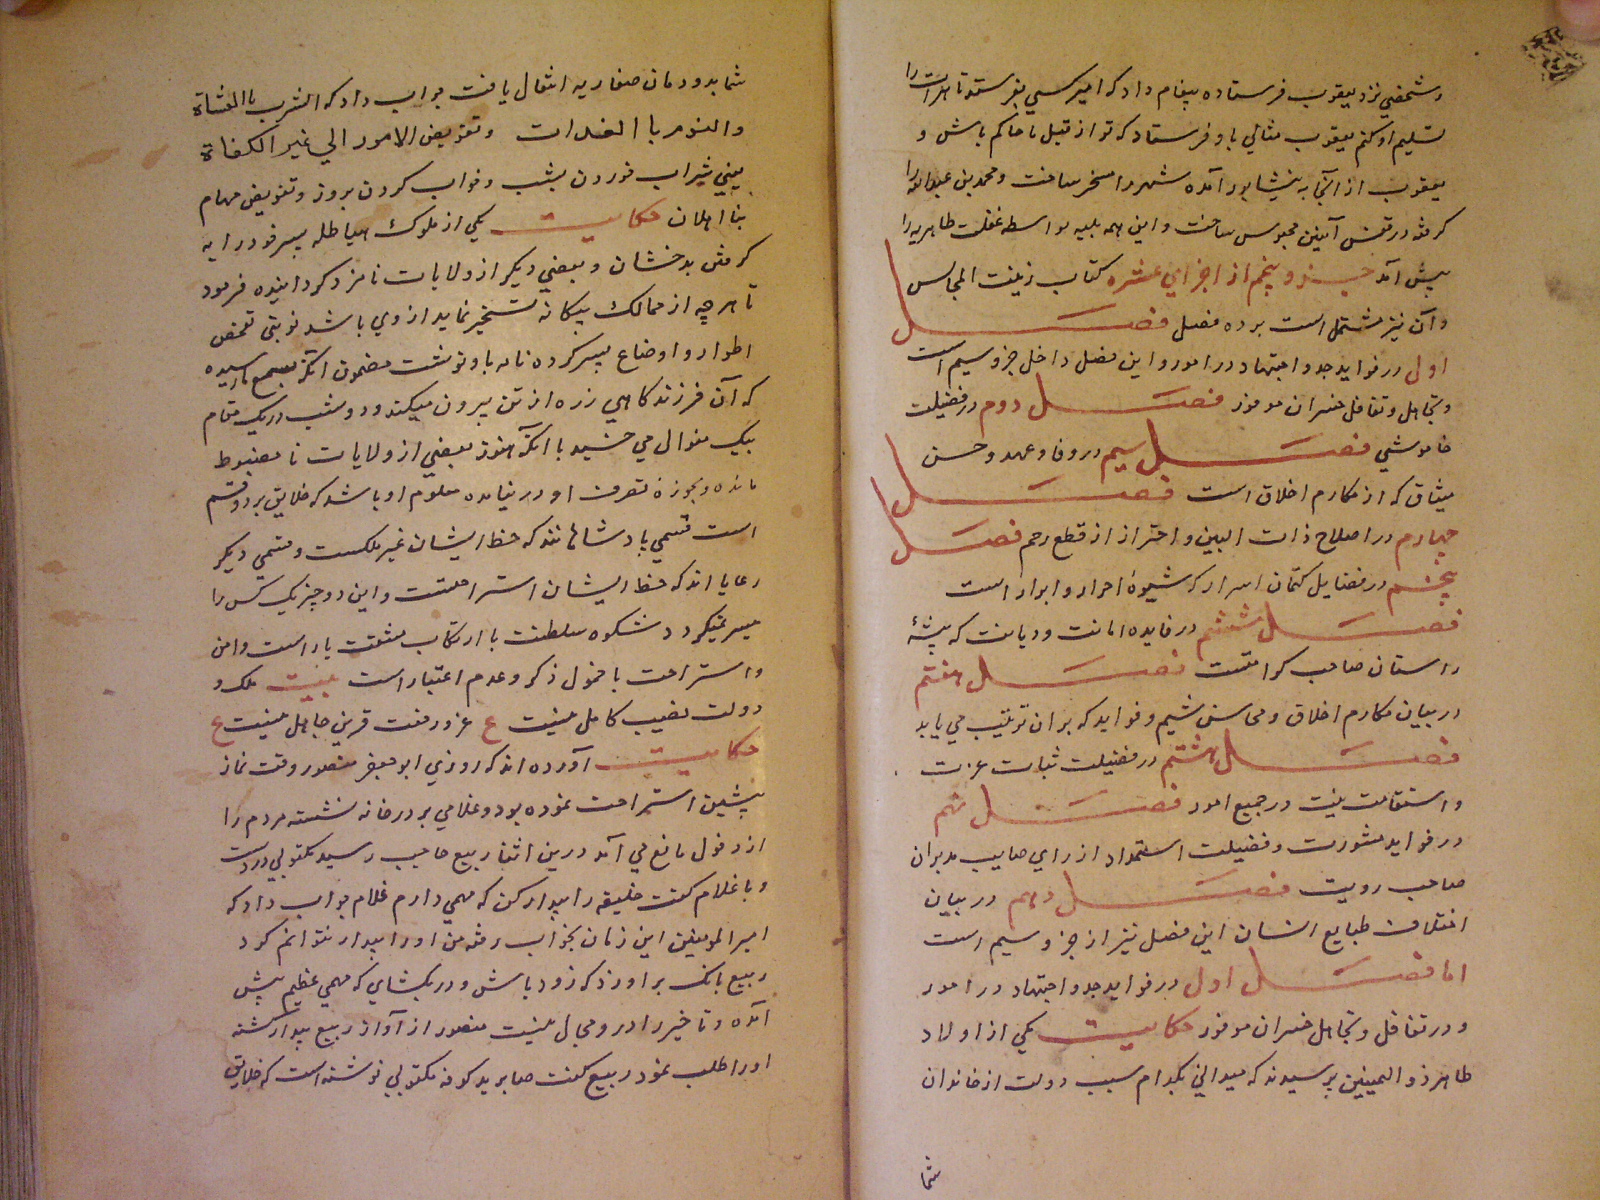 و شخصی نزد یعقوب فرستاده پیغام داد که امیر کسی بفرستد تا هرات را
تسلیم او کنم یعقوب مثالی باو فرستاد که تو از قبل ما حاکم باش و
یعقوب از آنجا به نیشابور آمده شهر را مسخر ساخت و محمد بن عبدالله را
گرفته در قفس آهنین محبوس ساخت و این همه بلیه بواسطه غفلت طاهریه را
پیش آمد جزو پنجم از اجزای عشره کتاب زینت المجالس
و آن نیز مشتمل است بر ده فصل فصل
اول در فواید جد و اجتهاد در امور و این فصل داخل جزو سیم است
و تجاهل و تغافل خسران موفور فصل دوم در فضیلت
خاموشی فصل سیم در وفا و عهد و حسن
میثاق که از مکارم اخلاق است فصل
چهارم در اصلاح ذات البین و احتراز از قطع رحم فصل
پنجم در فضایل کتمان اسرار که شیوهٔ احرار و ابرار است
فصل ششم در فایده امانت و دیانت که پیشهٔ
راستان صاحب کرامتست فصل هفتم
در بیان مکارم اخلاق و محاسن شیم و فواید که بران ترتیب می یابد
فصل هشتم در فضیلت ثبات عزت
و استقامت نیت در جمیع امور فصل نهم
در فواید مشورت و فضیلت استمداد از رای صایب مدبران
صاحب رویت فصل دهم در بیان
اختلاف طبایع انسان این فصل نیز از جزو سیم است
اما فصل اول در فواید جد و اجتهاد در امور
و در تغافل و تجاهل خسران موفور حکایت یکی از اولاد
طاهر ذوالیمینین پرسیدند که میدانی بکدام سبب دولت از خاندان
شما
شما بدودمان صفاریه انتقال یافت جواب داد که الشرب بالعشاة
والنوم بالغدات و تفویض الامور الی غیر الکفاة
یعنی شراب خوردن بشب و خواب کردن بروز و تفویض مهام
بنا اهلان حکایت یکی از ملوک هیاطله پسر خود را به
گرفتن بدخشان و بعضی دیگر از ولایات نامزد گردانیده فرمود
تا هر چه از ممالک بیگانه تسخیر نماید از وی باشد نوبتی تفحص
اطوار و اوضاع پسر کرده نامه باو نوشت مضمون انکه بسمع ما رسیده
که آن فرزند کاهی زره از تن بیرون میکند و دو شب در یک مقام
بیک منوال می خسبد با انکه هنوز بعضی از ولایات نامضبوط
مانده و بحوزهٔ تصرف او در نیامده معلوم او باشد که خلایق بر دو قسم
است قسمی پادشاهانند که حظ ایشان غیر ملکست و قسمی دیگر
رعایا اند که حظ ایشان استراحتست و این دو چیز یک کس را
میسر نمیگردد شکوه سلطنت با ارتکاب مشقت یار است و امن
و استراحت با خمول ذکر و عدم اعتبار است بیت ملک و
دولت نصیب کاهل نیست ع عز و رفعت قرین جاهل نیست ع
حکایت آورده اند که روزی ابو جعفر منصور وقت نماز
پیشین استراحت نموده بود و غلامی بر در خانه نشسته مردم را
از دخول مانع می آمد درین اثنا ربیع حاجب رسید مکتوبی در دست
و با غلام گفت خلیفه را بیدار کن که مهمی دارم غلام جواب داد که
امیر المومنین این زمان بخواب رفته من او را بیدار نتوانم کرد
ربیع بانک براورد که زود باش و در بکشای که مهمی عظیم پیش
آمده و تاخیر را در و مجال نیست منصور از آواز ربیع بیدار گشته
او را طلب نمود ربیع گفت صابرید کوفه مکتوبی نوشته است که خلایق